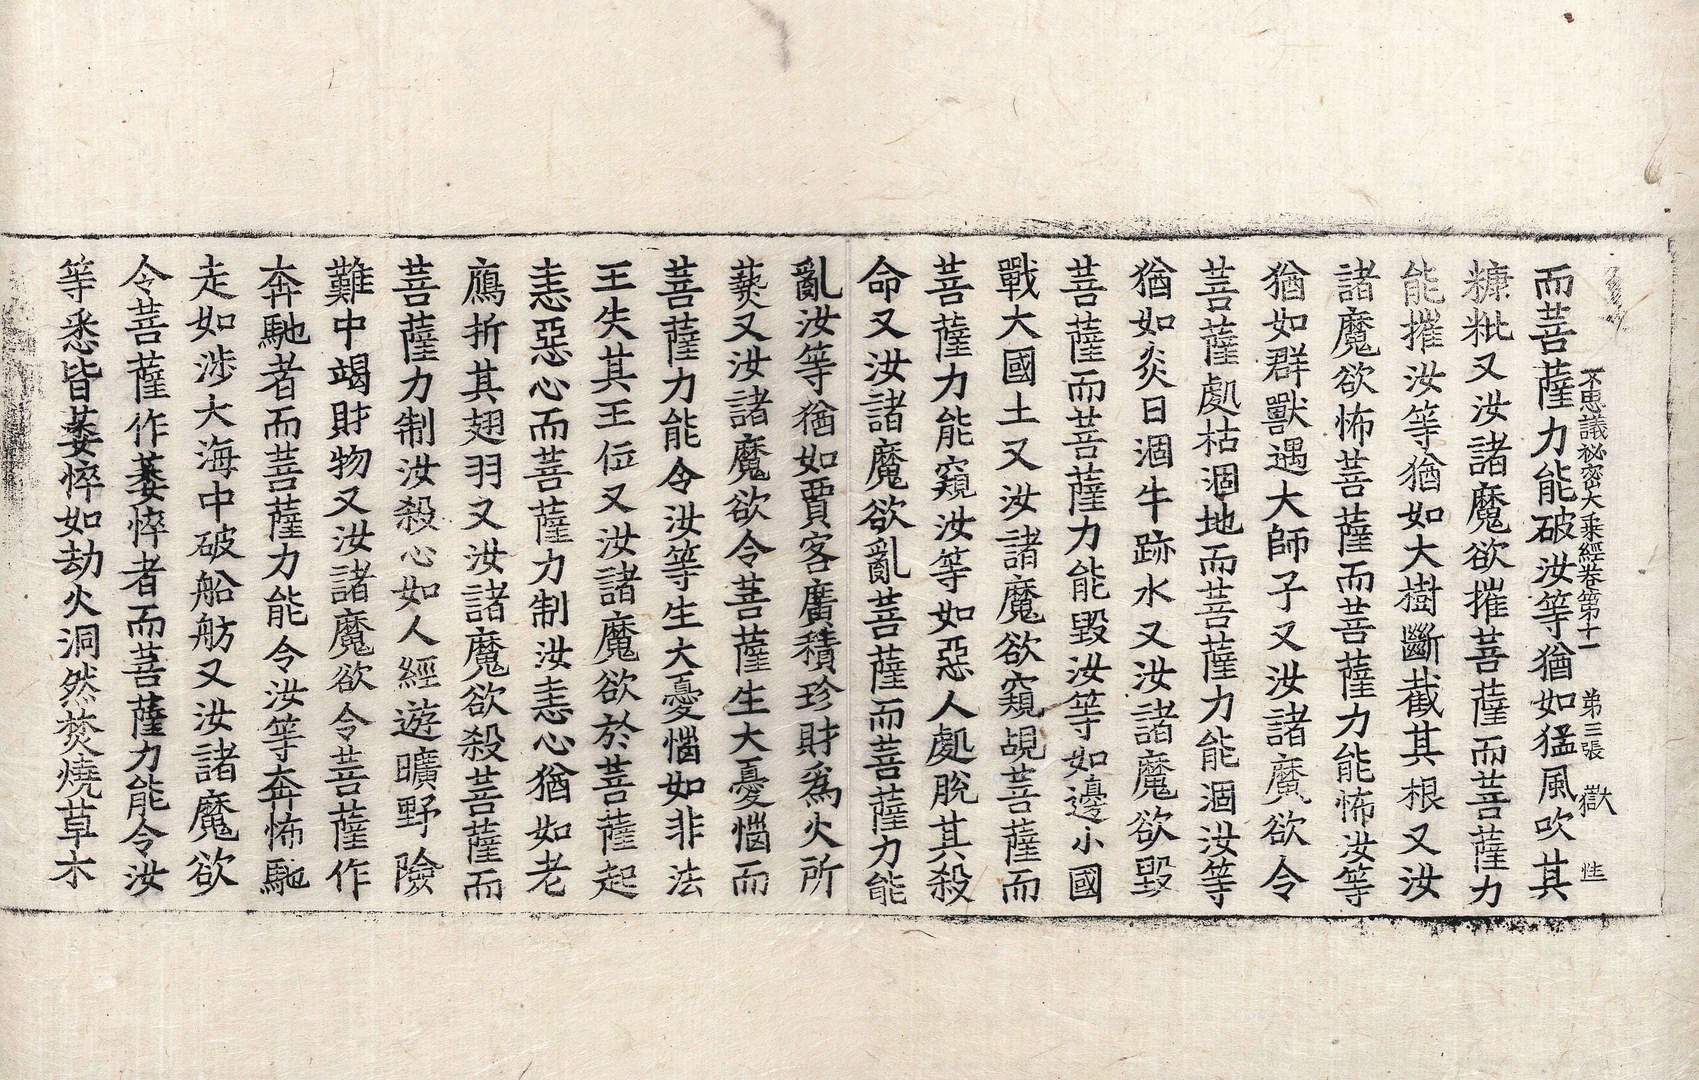 不思議祕密大乘經卷第十一 第三張 獄 性
而菩薩力能破汝等猶如猛風吹其
糠粃又汝諸魔欲摧菩薩而菩薩力
能摧汝等猶如大樹斷截其根又汝
諸魔欲怖菩薩而菩薩力能怖汝等
猶如群獸遇大師子又汝諸魔欲令
菩薩處枯涸地而菩薩力能涸汝等
猶如炎日涸牛跡水又汝諸魔欲毀
菩薩而菩薩力能毀汝等如邊小國
戰大國土又汝諸魔欲窺覘菩薩而
菩薩力能窺汝等如惡人處脫其殺
命又汝諸魔欲亂菩薩而菩薩力能
亂汝等猶如賈客廣積珍財為火所
爇又汝諸魔欲令菩薩生大憂惱而
菩薩力能令汝等生大憂惱如非法
王失其王位又汝諸魔欲於菩薩起
恚惡心而菩薩力制汝恚心猶如老
鴈折其翅羽又汝諸魔欲殺菩薩而
菩薩力制汝殺心如人經遊曠野險
難中竭財物又汝諸魔欲令菩薩作
奔馳者而菩薩力能令汝等奔怖馳
走如涉大海中破船舫又汝諸魔欲
令菩薩作萎悴者而菩薩力能令汝
等悉皆萎悴如劫火洞然焚燒草木